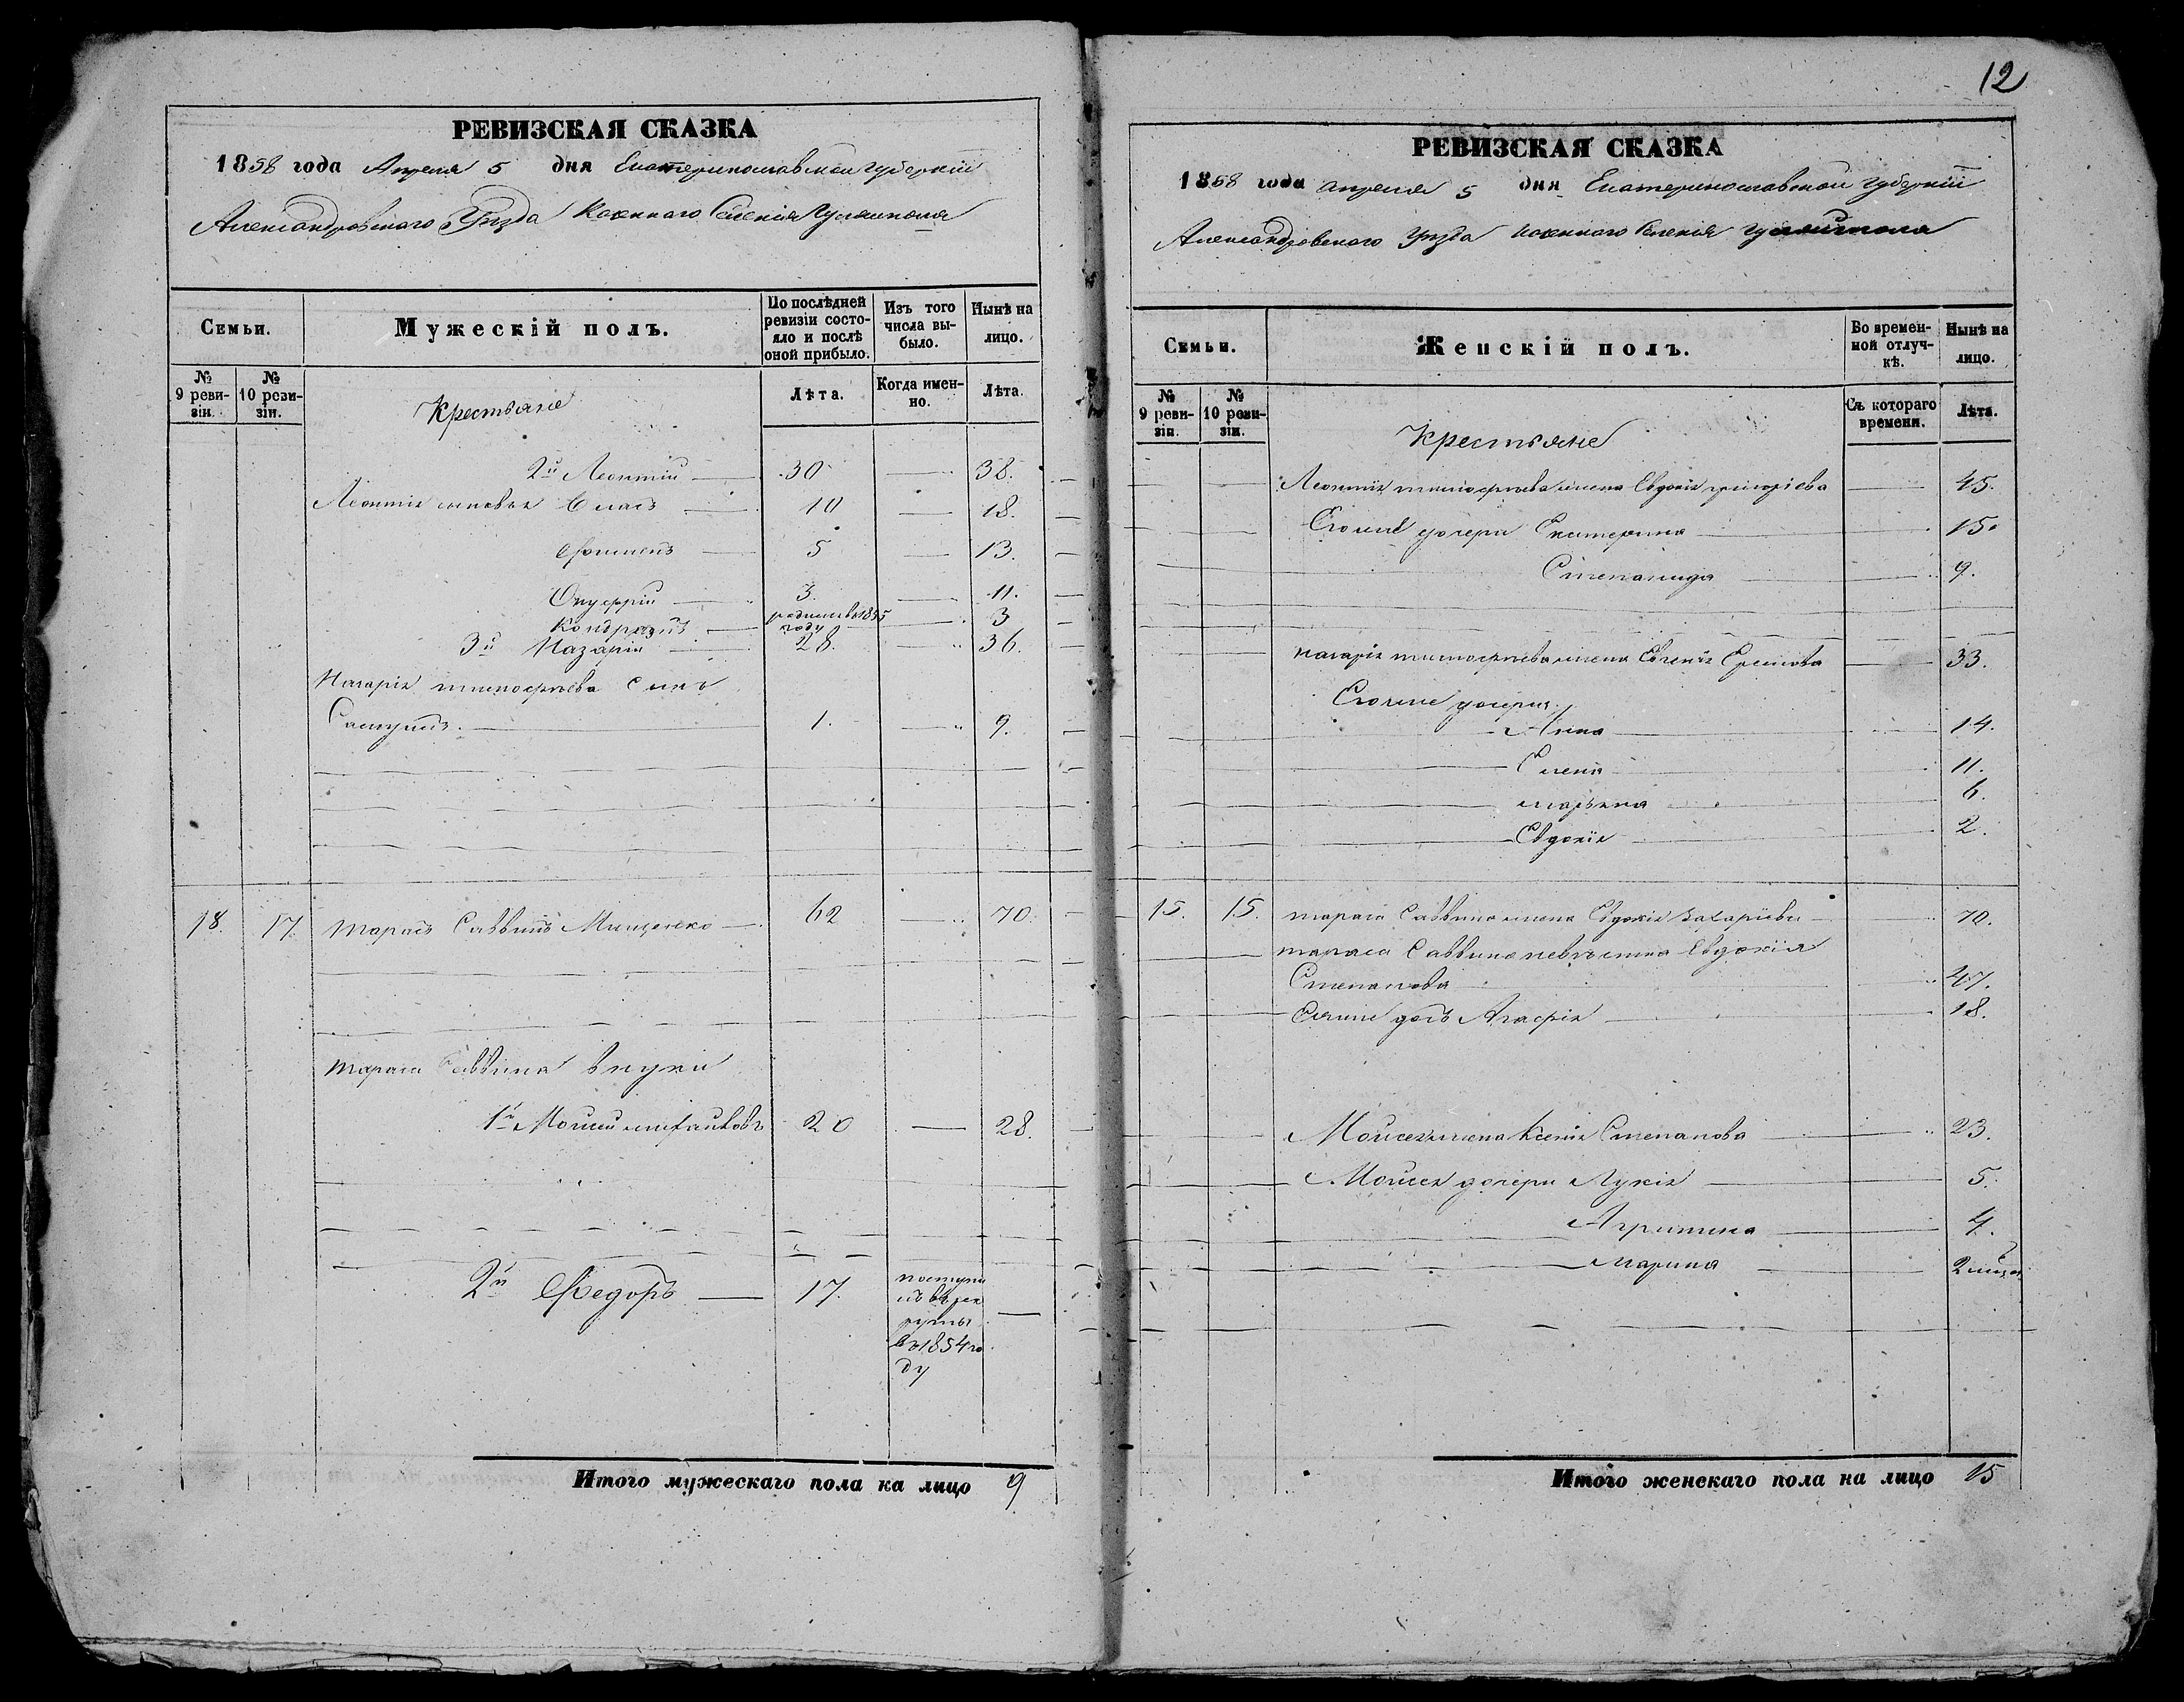 РЕВИЗСКАЯ СКАЗКА
1858 года Апреля 5 дня Екатеринославской губернии
Александровского Уезда Казенного Селения Гуляйполя
Семьи.
Мужескій полъ.
По послѣдней ревизіи состояло и послѣ оной прибыло.
Изъ того числа выбыло.
Нынѣ на лицо.
№ 9 ревизіи.
№ 10 ревизіи.
Крестьяне
Лѣта.
Когда именно.
Лѣта.
2й Леонтий 30 38.
Леонтия сыновья Влас 10 18.
Филипъ 5 13.
Онуфрий 3. 11.
Кондратъ родился въ 1855 году 3
3й Назарий 28. 36.
Назария тимофеева сынъ
1. 9.
18. 17. Тарасъ Саввинъ Мищенко 62 70.
Тараса Саввина внуки
1й Моисей михайловъ 20 28.
2й Федоръ 17. поступилъ в рекруты в 1854 году
Итого мужескаго пола на лицо 9
12
РЕВИЗСКАЯ СКАЗКА
1858 года апреля 5 дня Екатеринославской губернии
Александровского Уезда казенного Селения Гуляйполя
Семьи.
Женскій полъ.
Во временной отлучкѣ.
Нынѣ на лицо.
№ 9 ревизіи.
№ 10 ревизіи.
Крестьяне
Съ котораго времени.
Лѣта.
Леонтия тимофеева жена Евдокия григориева 45.
Его дочери Екатерина 15.
Степанида 9.
назария тимофеева жена Евгения 33.
дочери
Анна 14.
Елена 11.
марьяна 6.
Евдокия 2.
15. 15. тараса Саввина жена Евдокия Захариева 70.
тараса Саввина невестка Евдокия
Степанова 47.
дочь Агафия 18.
Моисея жена Ксения Степанова 23.
Моисея дочери Лукия 5.
Агрипина 4.
марина 2
Итого женскаго пола на лицо 15